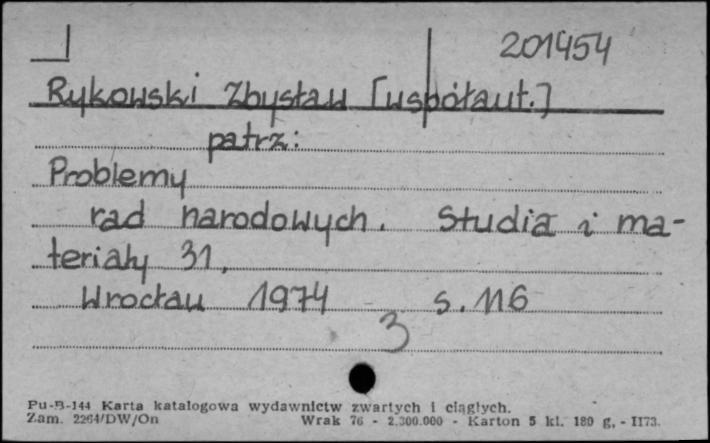 201454
Rykowski Zbysław [współaut.]
patrz:
Problemy
rad narodowych. Studia i ma-
teriały 31.
Wrocław 1974 s. 116
3
Pu-B-144 Karta katalogowa wydawnictw zwartych i ciągłych.
Zam. 2264/DW/On Wrak 76 - 2.300.000 - Karton 5 kl. 180 g. - II73.